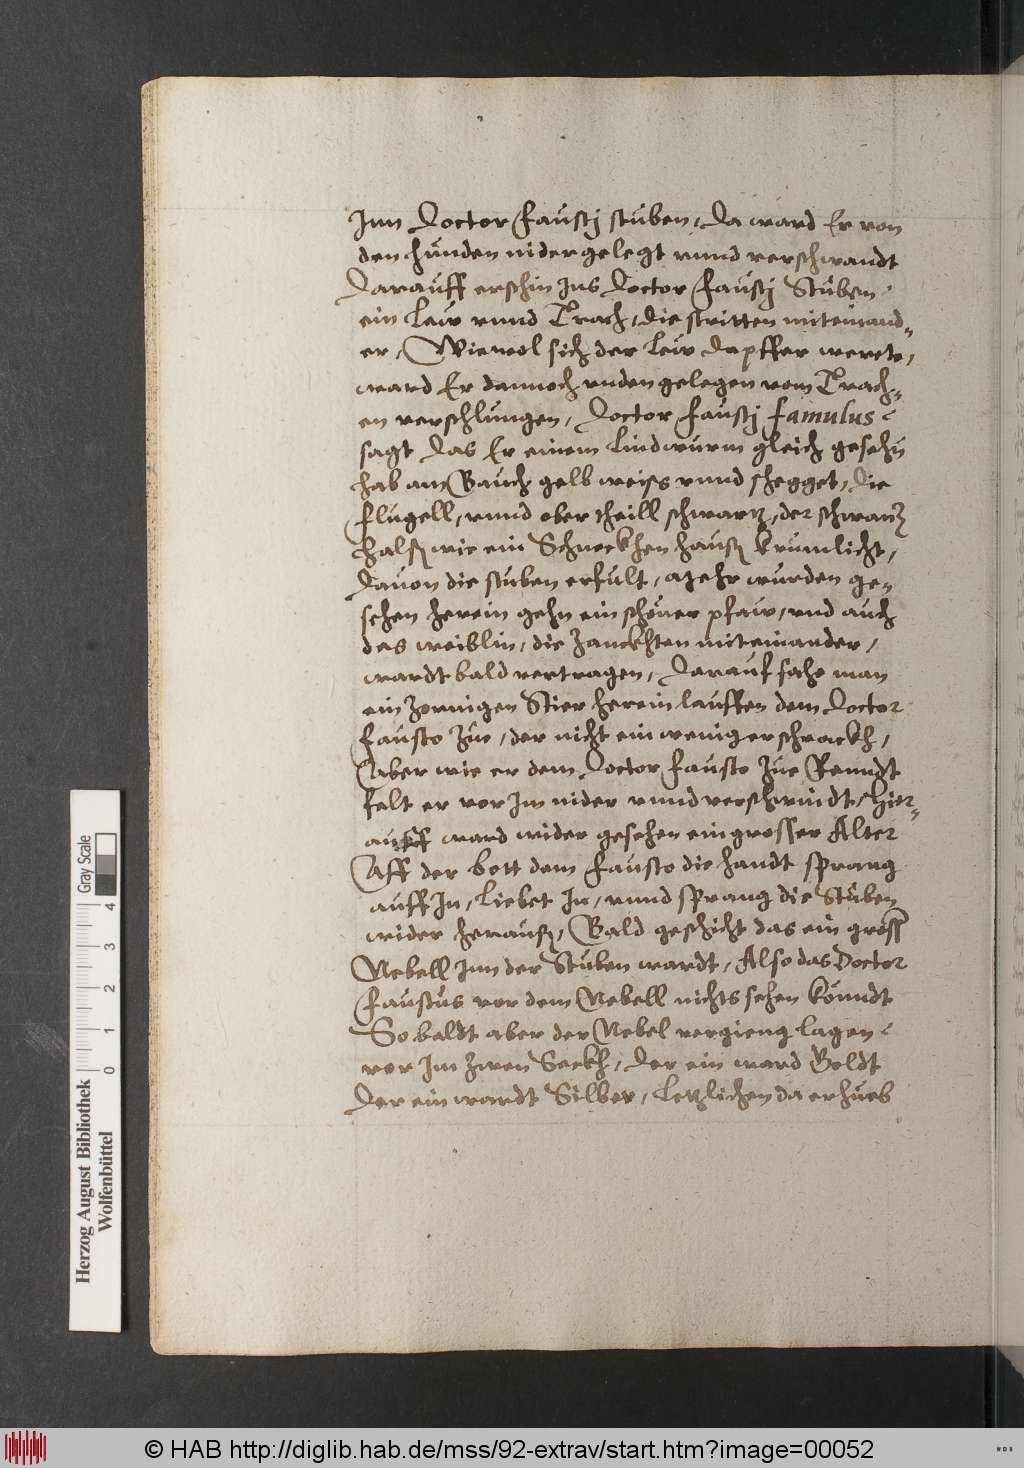 Inn Doctor Faustj stuben, Da ward Er von
den hunden nidergelegt vnnd verschwandt
Darauff erschin Ins Doctor Faustj Stuben
ein Lew vnnd Trach, die stritten miteinand=
er, Wiewol sich der Lew dapffer werete,
ward Er dannoch vnden gelegen vom Trach=
en verschlungen, Doctor Faustj famulus
sagt Das Er einem Lindwurm gleich gesehn
hab am Bauch gelb weiss vnnd schegget, die
flugell, vnnd ober theill schwartz, der schwantz
halß wie ein Schneckhen hauß krumlicht,
Dauon die stuben erfult, Mehr wurden ge=
sehen herein gehn ein schöner pfaw, vnd auch
das weiblin, die Zanckhten miteinander,
wardt bald vertragen, Darauf sahe man
ein zornigen Stier herein lauffen dem Doctor
Fausto Zue, der nicht ein wenig erschrackh,
Aber wie er dem Doctor Fausto Zue Renndt
felt er vor Im nider vnnd verschwindt, Hier=
auff ward wider gesehen ein grosser Alter
Aff der bott dem Fausto die handt sprang
auff In, Liebet In, vnnd sprang die Stuben
wider herauß, Bald geschicht das ein gross
Nebell Inn der Stuben wardt, Also das Doctor
Faustus vor dem Nebell nichts sehen könndt
So baldt aber der Nebel vergieng lagen
vor Im zwen Seckh, Der ein ward Goldt
Der ein wardt Silber, Letzlichen da erhueb
Herzog August Bibliothek
Wolfenbüttel
0 1 2 3 4
Gray Scale
© HAB http://diglib.hab.de/mss/92-extrav/start.htm?image=00052
WDB